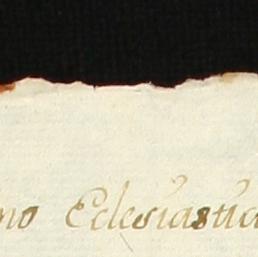 no Eclesiastic